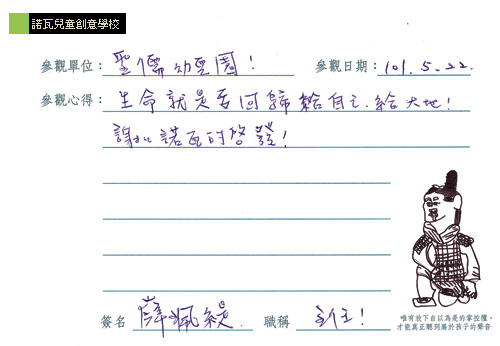 諾瓦兒童創意學校
參觀單位：聖儒幼兒園！ 參觀日期：101. 5. 22.
參觀心得：生命就是要回歸給自己.給大地！
謝謝諾瓦的啓發！
簽名 薛珮緹 職稱 主！
唯有放下自以為是的掌控權，
才能真正聽到屬於孩子的聲音